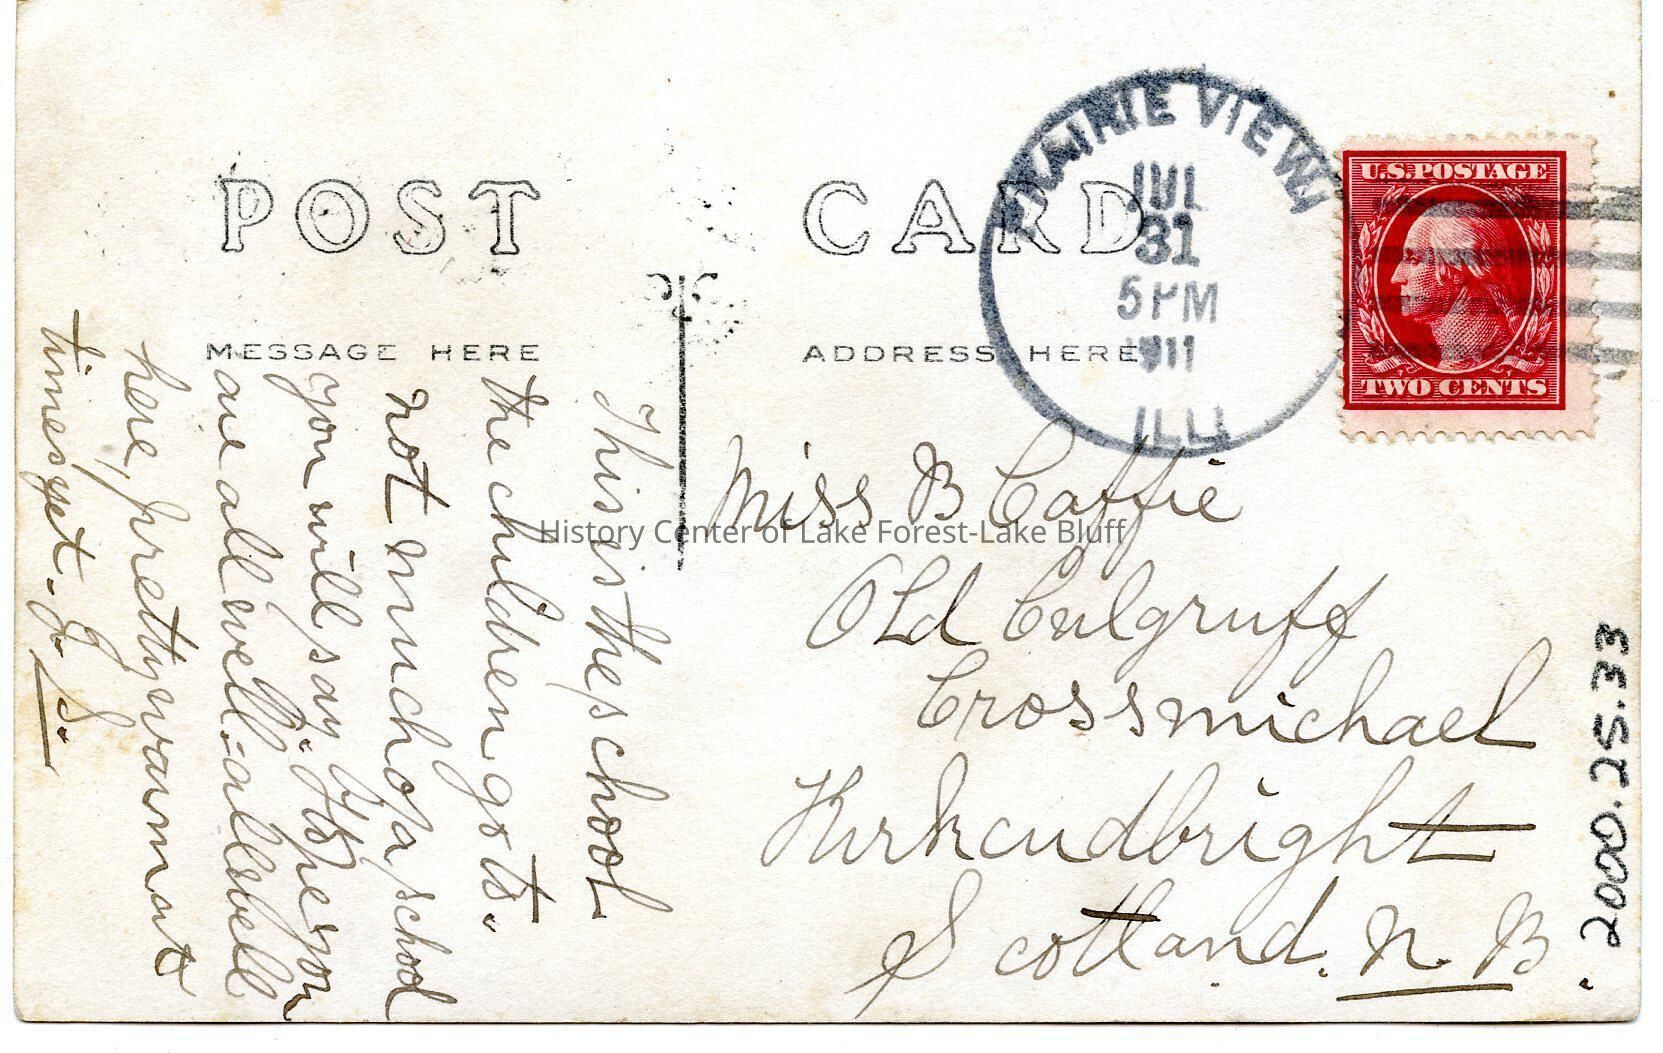 POST CARD
MESSAGE HERE
ADDRESS HERE
PRAIRIE VIEW,
JUL
31
5 PM
1911
ILL
U.S. POSTAGE
TWO CENTS
This is the school
the children go to.
not much of a school
you will say. Hope you
are all well. all well
here, pretty warm at
times yet. J. S.
Miss B Caffie
Old Culgruff
Crossmichael
Kirkcudbright
Scotland. N. B.
2000.25.33
History Center of Lake Forest-Lake Bluff